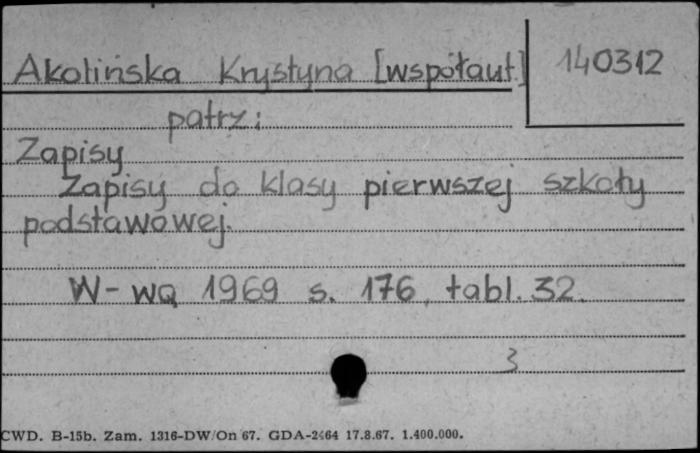 Akolińska Krystyna [współaut.] 140312
patrz:
Zapisy
Zapisy do klasy pierwszej szkoły
podstawowej.
W-wa 1969 s. 176, tabl. 32.
3
CWD. B-15b. Zam. 1316-DW/On 67. GDA-2464 17.8.67. 1.400.000.